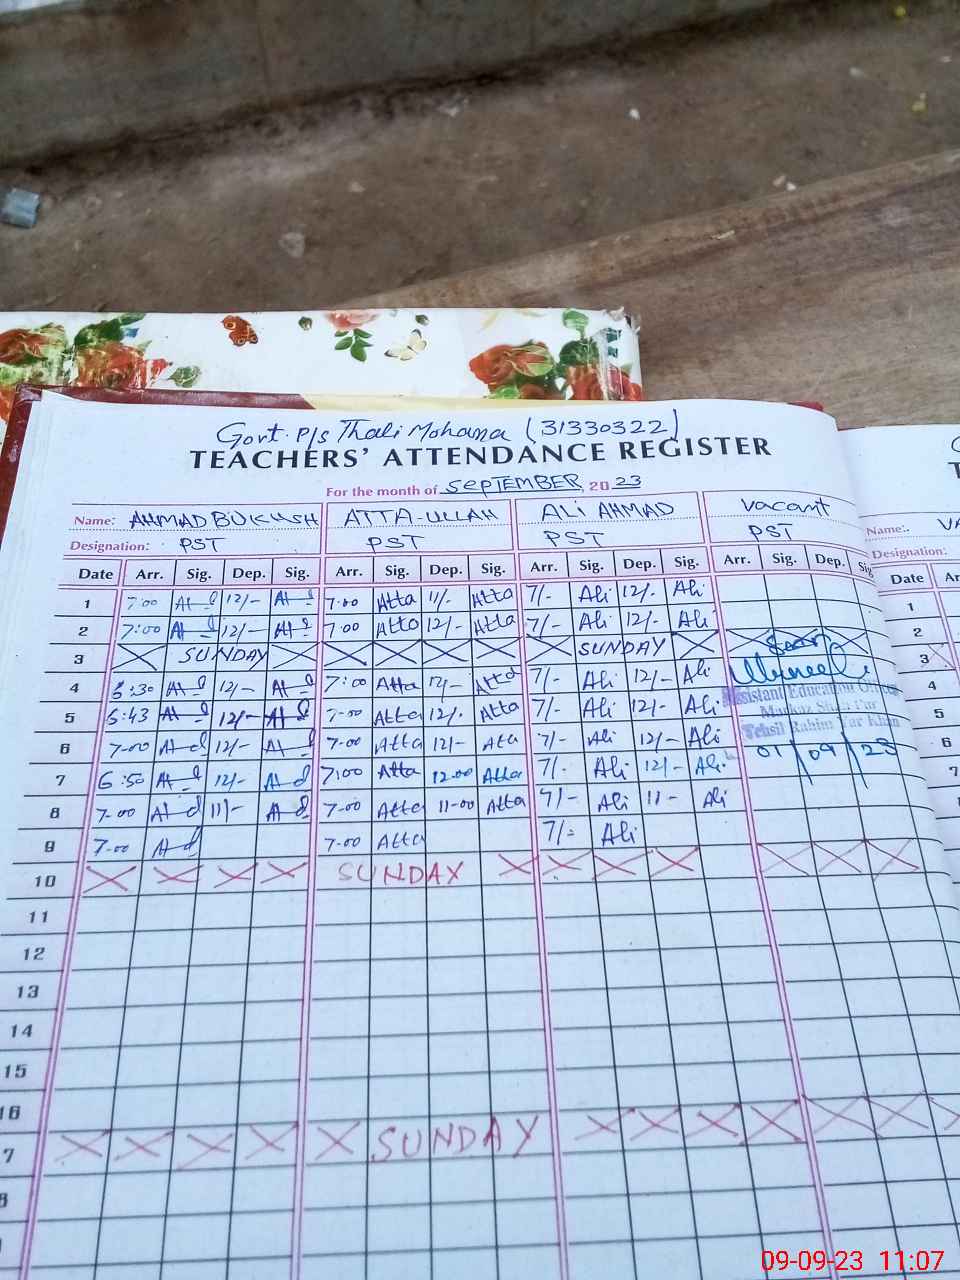 Govt. P/s Thali Mohana (31330322)
TEACHERS' ATTENDANCE REGISTER
For the month of SEPTEMBER 2023
Name: AHMAD BUKHSH ATTA-ULLAH ALI AHMAD Vacant
Designation: PST PST PST PST
Date Arr. Sig. Dep. Sig. Arr. Sig. Dep. Sig. Arr. Sig. Dep. Sig. Arr. Sig. Dep. Sig.
1 7:00 12/- 7:00 Atta 11/- Atta 7/- Ali 12/- Ali
2 7:00 12/- 7:00 Atta 12/- Atta 7/- Ali 12/- Ali
3 SUNDAY SUNDAY
4 :30 12/- 7:00 Atta 12/- Atta 7/- Ali 12/- Ali
5 6:43 12/- 7-00 Atta 12/- Atta 7/- Ali 12/- Ali
6 7-00 12/- 7-00 Atta 12/- Atta 7/- Ali 12/- Ali
7 6:50 12/- 7:00 Atta 12-00 Atta 7/- Ali 12/- Ali
8 7-00 11/- 7-00 Atta 11-00 Atta 7/- Ali 11- Ali
9 7-00 7-00 Atta 7/= Ali
10 SUNDAY
11
12
13
14
15
16
7 SUNDAY
8
Assistant Education Officer
Markaz
Tehsil Rahim Yar Khan
01/09/23
Name:. VA
Designation:
Date Ar
1
2
3
4
5
6
7
09-09-23 11:07